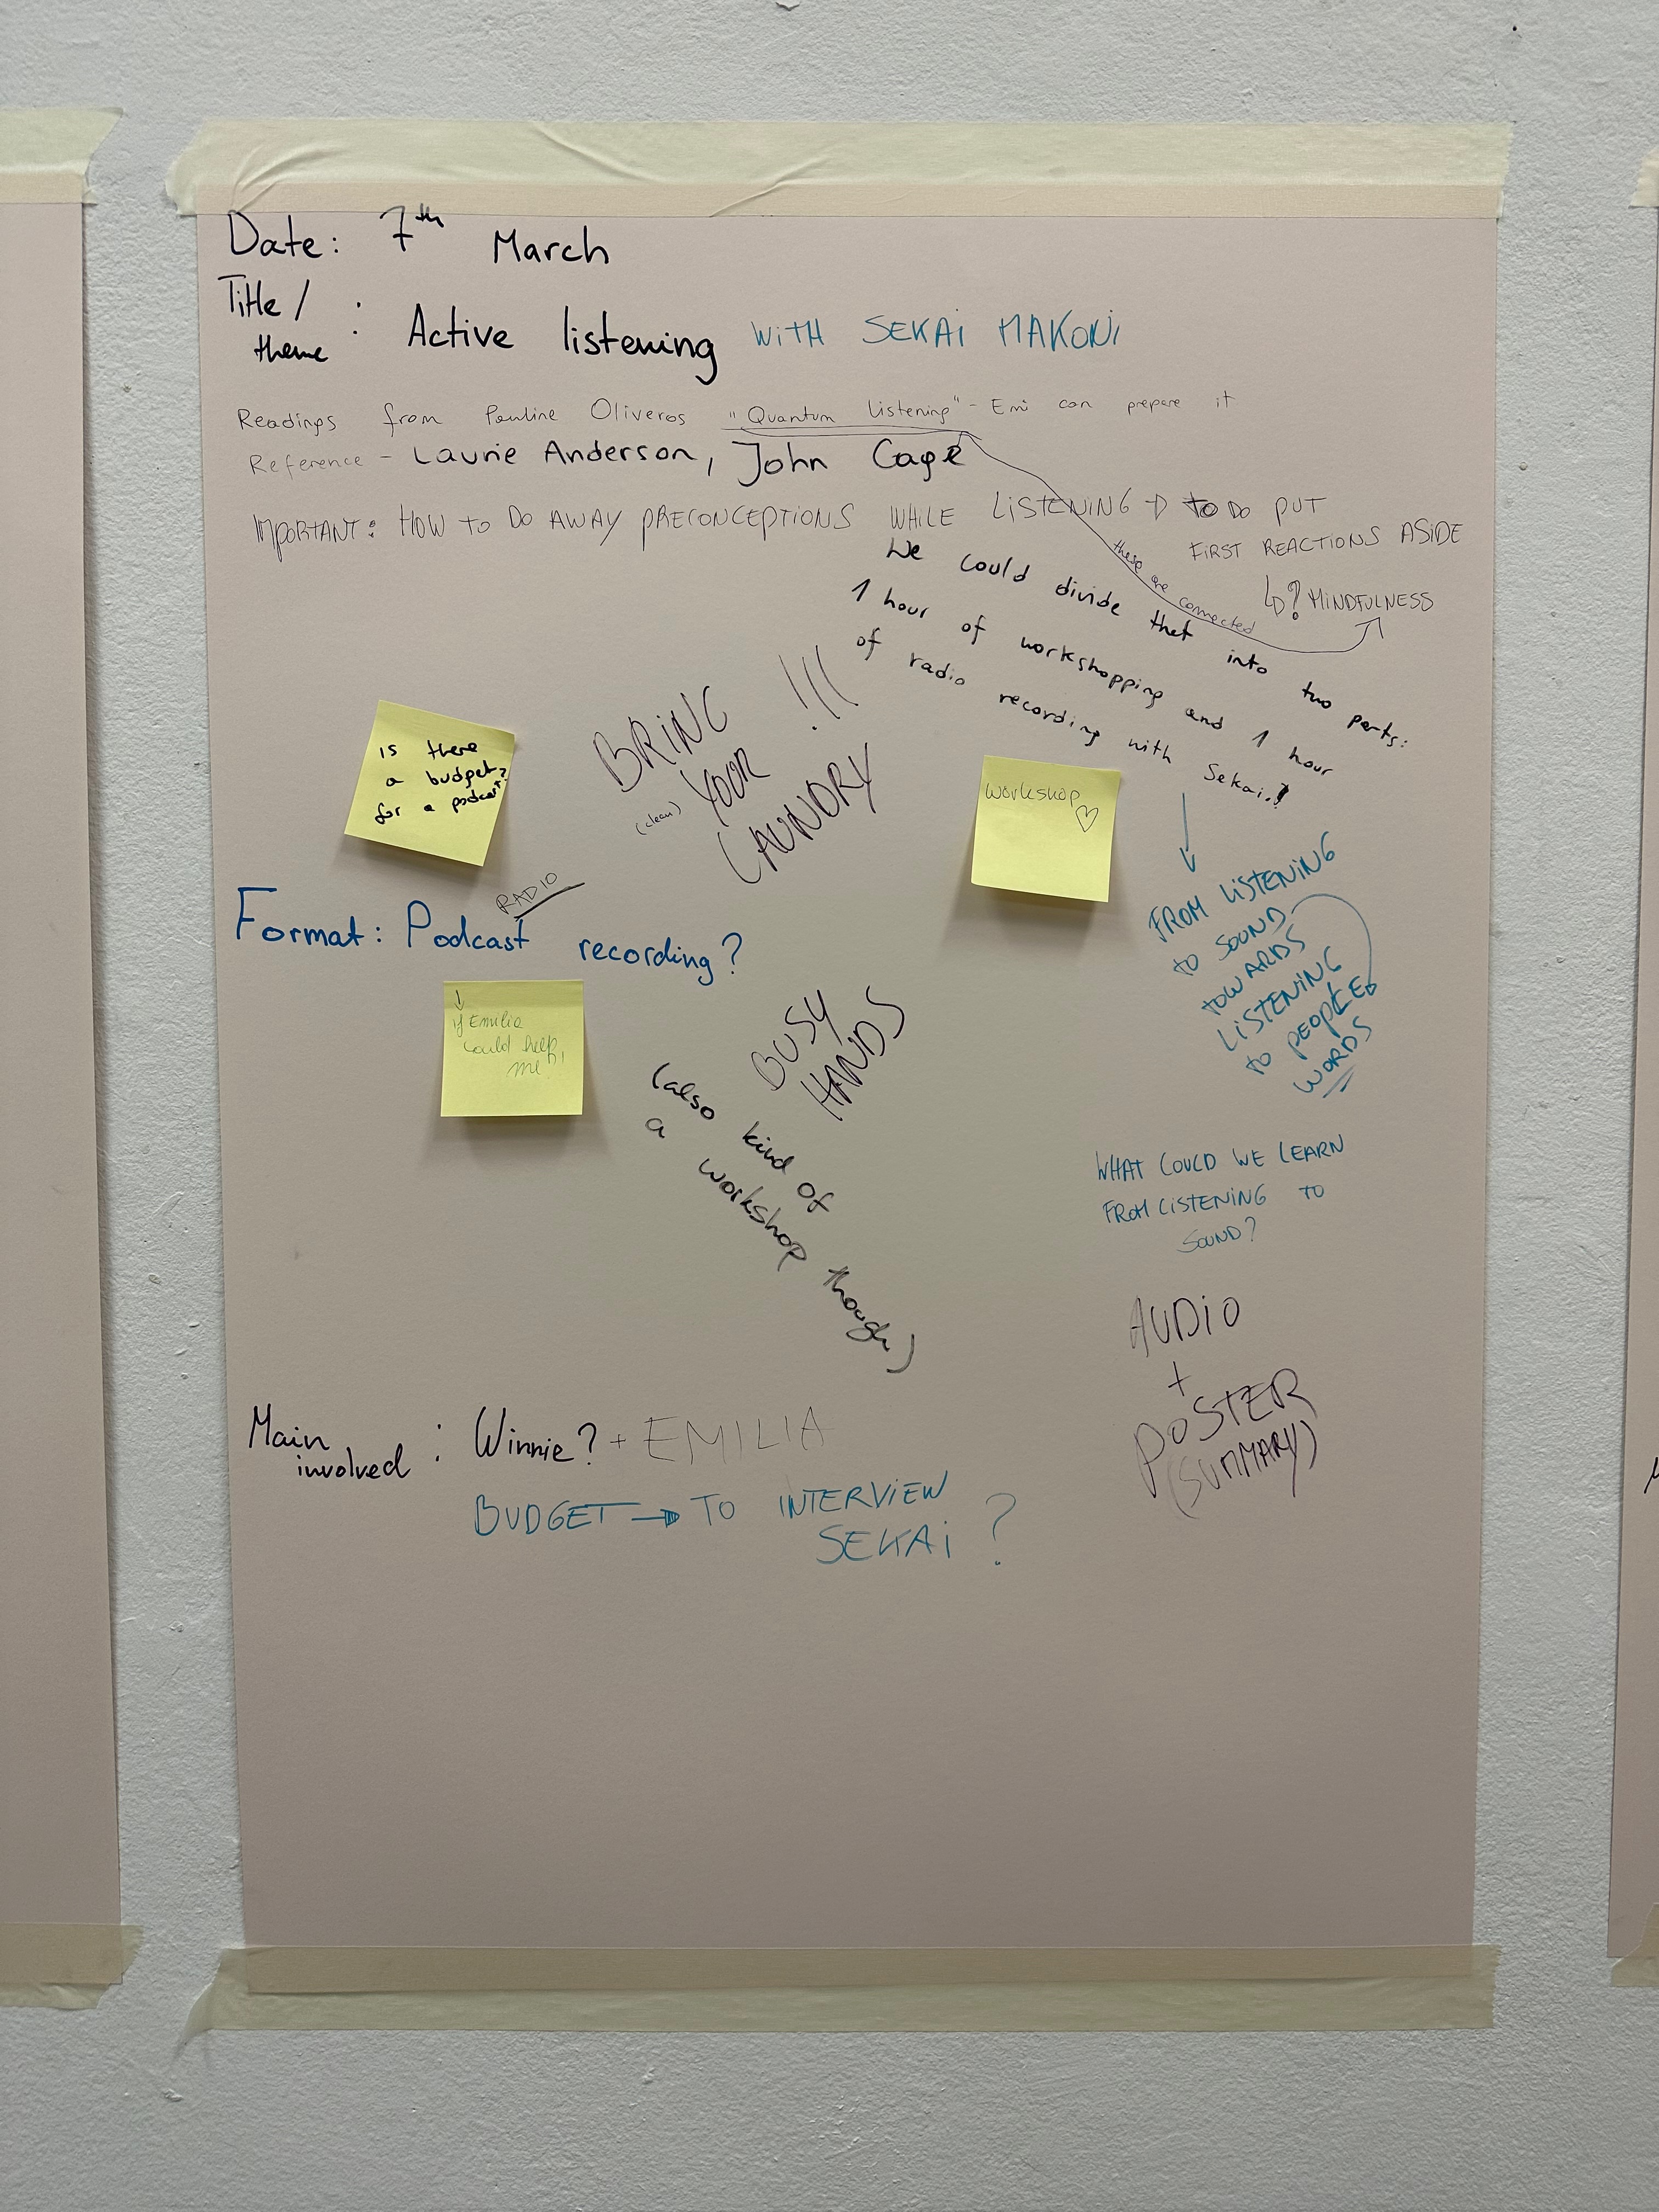 Date: 7th March
Title/
theme : Active listening WITH SEKAI MAKONI
Readings from Pauline Oliveros "Quantum Listening" - Emi can prepare it
Reference - Laurie Anderson, John Cage
IMPORTANT: HOW TO DO AWAY PRECONCEPTIONS WHILE LISTENING → TO DO PUT
FIRST REACTIONS ASIDE
↳? MINDFULNESS
these are connected
We could divide that into two parts:
1 hour of workshopping and 1 hour
of radio recording with Sekai!
BRING
(clean) YOUR
LAUNDRY !!!
is there
a budget?
for a podcast
workshop
♡
FROM LISTENING
TO SOUND
TOWARDS
LISTENING
TO PEOPLE
WORDS
RADIO
Format: Podcast recording?
↓
if Emilia
could help
me!
BUSY
HANDS
(also kind of
a workshop though)
WHAT COULD WE LEARN
FROM LISTENING TO
SOUND?
AUDIO
+
POSTER
(SUMMARY)
Main
involved : Winnie? + EMILIA
BUDGET → TO INTERVIEW
SEKAI ?